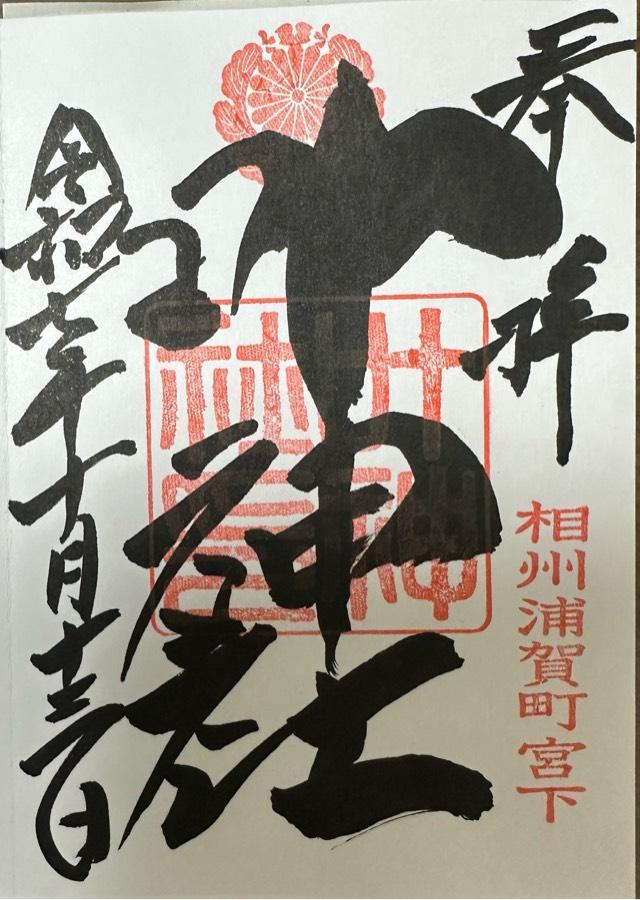 奉拝
相州浦賀町宮下
叶神社
叶神
社印
令和
年十月十三日